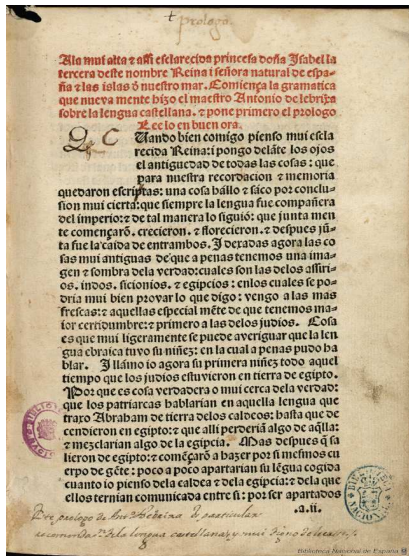 prologo.
A la mui alta & assi esclarecida princesa doña Isabel la
tercera deste nombre Reina i señora natural de espa-
ña & las islas đ nuestro mar. Comiença la gramatica
que nueva mente hizo el maestro Antonio de lebrixa
sobre la lengua castellana. & pone primero el prologo
Lee lo en buen ora.
C Uando bien comigo pienso mui escla
recida Reina: i pongo delãte los ojos
el antiguedad de todas las cosas: que
para nuestra recordacion & memoria
quedaron escriptas: una cosa hállo & sáco por conclu
sion mui cierta: que siempre la lengua fue compañera
del imperio: & de tal manera lo siguió: que junta men
te començarõ. crecieron. & florecieron. & despues jũ-
ta fue la caida de entrambos. I dexadas agora las co
sas mui antiguas de que a penas tenemos una ima-
gen & sombra dela verdad: cuales son las delos assiri-
os. indos. sicionios. & egipcios: enlos cuales se po-
dria mui bien provar lo que digo: vengo a las mas
frescas: & aquellas especial mẽte de que tenemos ma-
ior certidumbre: & primero a las delos judios. Cosa
es que mui ligeramente se puede averiguar que la len
gua ebraica tuvo su niñez: en la cual a penas pudo ha
blar. I llámo io agora su primera niñez todo aquel
tiempo que los judios estuvieron en tierra de egipto.
Por que es cosa verdadera o mui cerca dela verdad:
que los patriarcas hablarian en aquella lengua que
traxo Abraham de tierra delos caldeos: hasta que de
cendieron en egipto: & que alli perderiã algo de aq̃lla:
& mezclarian algo de la egipcia. Mas despues q̃ sa
lieron de egipto: & començarõ a hazer por si mesmos cu
erpo de gẽte: poco a poco apartarian su lẽgua cogida
cuanto io pienso dela caldea & dela egipcia: & dela que
ellos ternian comunicada entre si: por ser apartados
.a.ii.
Este prologo de Ant° Nebrixa
de la lengua castellana y mui digno de
Biblioteca Nacional de España